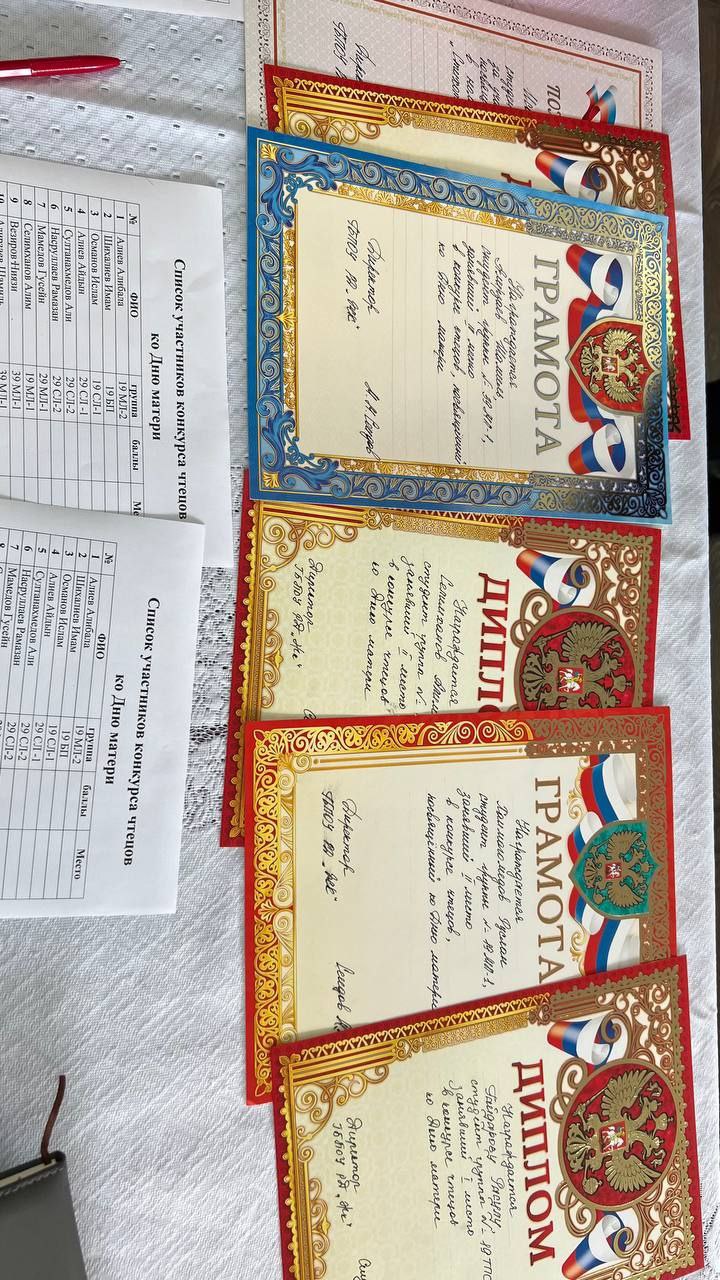 ГРАМОТА
Награждается
студент группы № 39 МЛ-1,
занявший II место
в конкурсе чтецов, посвященный
ко Дню матери
Директор
ГБПОУ РД
ДИПЛО
Награждается
Селимханов
студент группы №
Занявший II место
в конкурсе чтецов
ко Дню матери
Директор
ГБПОУ РД
ГРАМОТА
Награждается
Руслан
студент группы № 19 МЛ-1,
занявший II место
в конкурсе чтецов,
посвященный ко Дню матери
Директор
ГБПОУ РД
ДИПЛОМ
Награждается
Гайдарову Расулу
студент группы № 19 ТПС
Занявший I место
в конкурсе чтецов
ко Дню матери
Директор
ГБПОУ РД
Список участников конкурса чтецов
ко Дню матери
№ ФИО группа баллы Ме
1 Алиев Алибала 19 МЛ-2
2 Шихалиев Имам 19 БП
3 Османов Ислам 19 СЛ-1
4 Алиев Айдын 29 СЛ -1
5 Султанахмедов Али 29 СЛ-2
6 Насруллаев Рамазан 29 СЛ-2
7 Мамедов Гусейн 29 МЛ-1
8 Селимханов Алим 19 МЛ-1
9 Везиров Ниязи 39 МЛ-1
10 39 МЛ-1
Список участников конкурса чтецов
ко Дню матери
№ ФИО группа баллы Место
1 Алиев Алибала 19 МЛ-2
2 Шихалиев Имам 19 БП
3 Османов Ислам 19 СЛ-1
4 Алиев Айдын 29 СЛ -1
5 Султанахмедов Али 29 СЛ-2
6 Насруллаев Рамазан 29 СЛ-2
7 Мамедов Гусейн
8